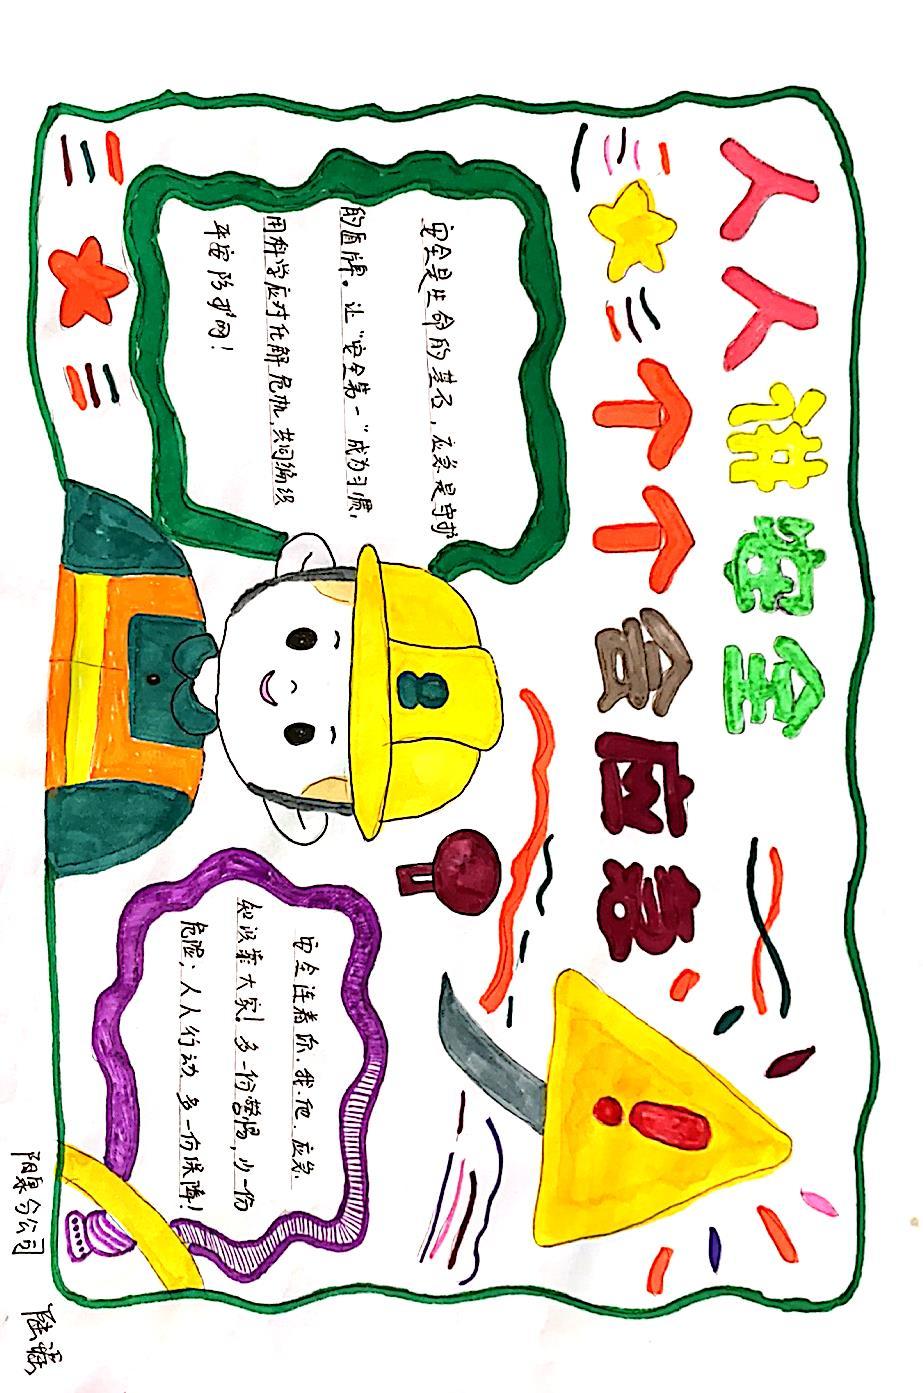 人人讲安全
个个会应急
安全是生命的基石,应急是守护
的盾牌。让"安全第一"成为习惯,
用科学应对化解危机,共同编织
平安防护网!
安全连着你、我、他、应急
知识靠大家!多一份警惕,少一份
危险;人人行动 多一份保障!
阳泉分公司